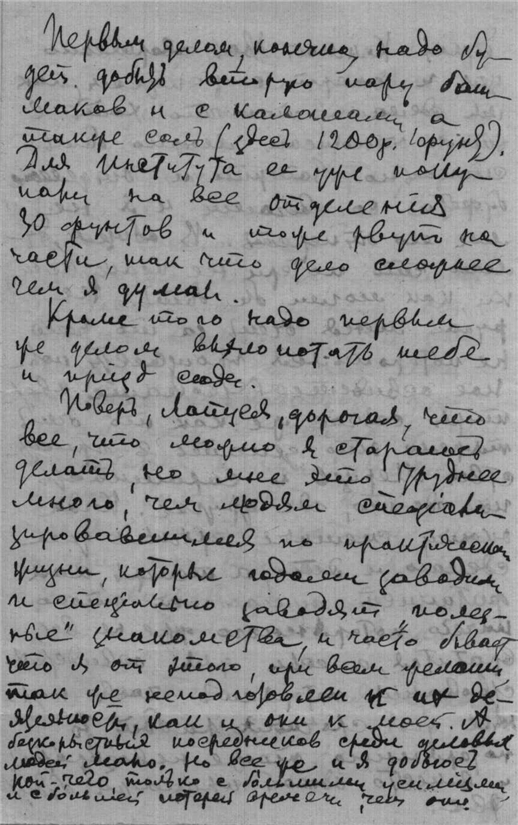 Первым делом, конечно, надо бу
дет добыть вторую пару баш
маков и с калошами, а
также соль (здесь 1200р. 1 фунт).
Для Института ее уже полу
на все отделения
30 фунтов и тоже рвут на
части, так что дело сложнее
чем я думал.
Кроме того надо первым
же делом выхлопотать тебе
и приезд сюда.
Поверь, Лапуся, дорогая, что
все, что можно я стараюсь
делать, но мне это труднее
много, чем людям специали
зировавшимся по практической
жизни, которые годами заводили
и специально заводят "полез-
ные" знакомства, и часто бывает
что я от этого, при всем желании
так же неподготовлен к их де-
ятельности, как и они к моей. А
безкорыстных посредников среди деловых
людей мало. Но все же и я добьюсь
кой-чего только с большими усилиями
и с большей потерей времени, чем они.